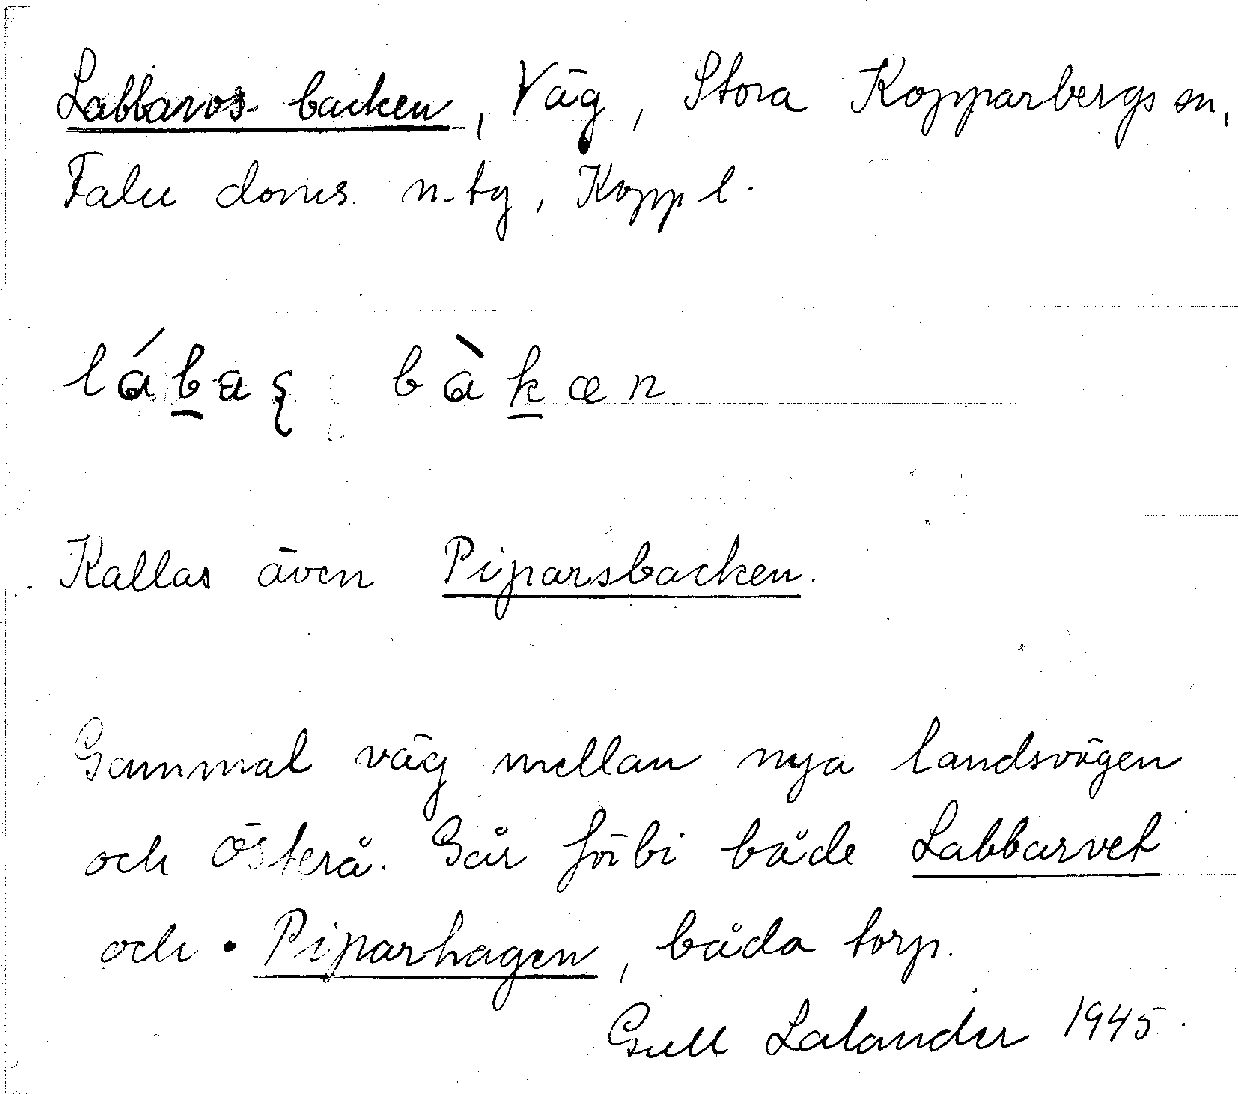 Labbaros-backen, Väg, Stora Kopparbergs sn,
Falu doms. n. tg, Kopp l.
lábaş bàkæn
Kallas även Piparsbacken.
Gammal väg mellan nya landsvägen
och Österå. Går förbi både Labbarvet
och • Piparhagen, båda torp.
Gull Lalander 1945.